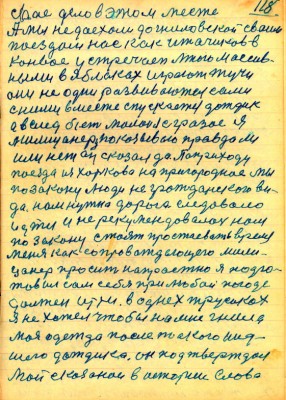 118
свае дело в этом месте
А мы не доехали до гниловской своим
поездом нас как и начиков в
конвое устречает много массив
ными в яблоках играют тучи
они не одни развиваются сами
с ними вместе спускается дождик
а вслед бьет молния с грозае я
милицанеру показываю правда ли
или нет он сказал да Паприходу
поезда из харкова на пригороднае мы
по закону люди не гражданского ви
да. нам нужна дорога следовало
идти и не рекумендовалас нам
по закону стаят простаевать время
меня как сопровождающего мили
цанер просить напрастно я подго
товил сам себя при любой погоде
должен итти. в однех трусиках
я не хочеш чтобы на мне гнила
моя одежда после такого ид
шего дождика. он подтвердал
мой сказаной в истории слова